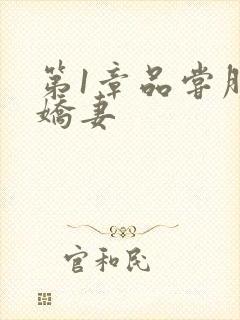 第1章品尝
娇妻
官和民